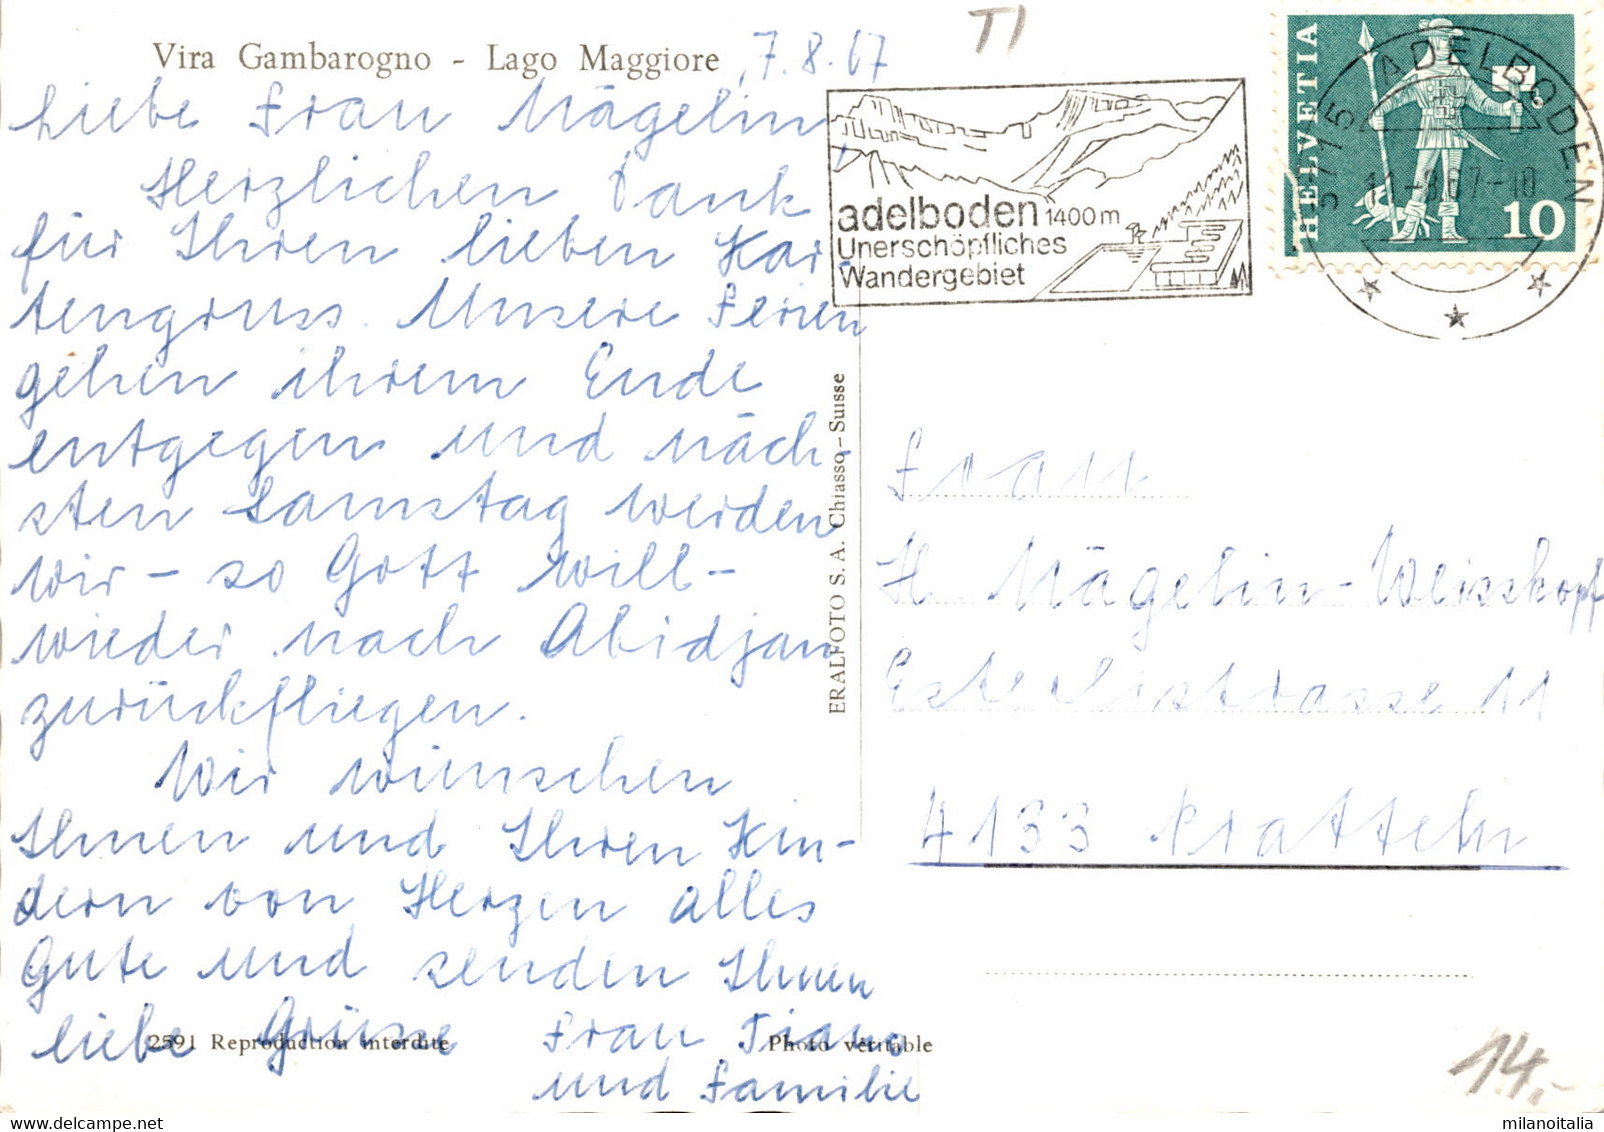 Vira Gambarogno - Lago Maggiore
7.8.67
TI
Liebe Frau Mägelin,
Herzlichen Dank
für Ihren lieben Kar-
tengruss. Unsere Ferien
gehen ihrem Ende
entgegen und näch-
sten Samstag werden
wir – so Gott will –
wieder nach Abidjan
zurückfliegen.
Wir wünschen
Ihnen und Ihren Kin-
dern von Herzen alles
Gute und senden Ihnen
liebe Grüsse Frau
und Familie
2591 Reproduction interdite
Photo véritable
ERALFOTO S. A. Chiasso - Suisse
adelboden 1400m
Unerschöpfliches
Wandergebiet
HELVETIA
10
3715 ADELBODEN
11.-8.67-18
Frau
H Mägelin-Weisskopf
Esterlistrasse 11
4133 Pratteln
14.-
milanoitalia